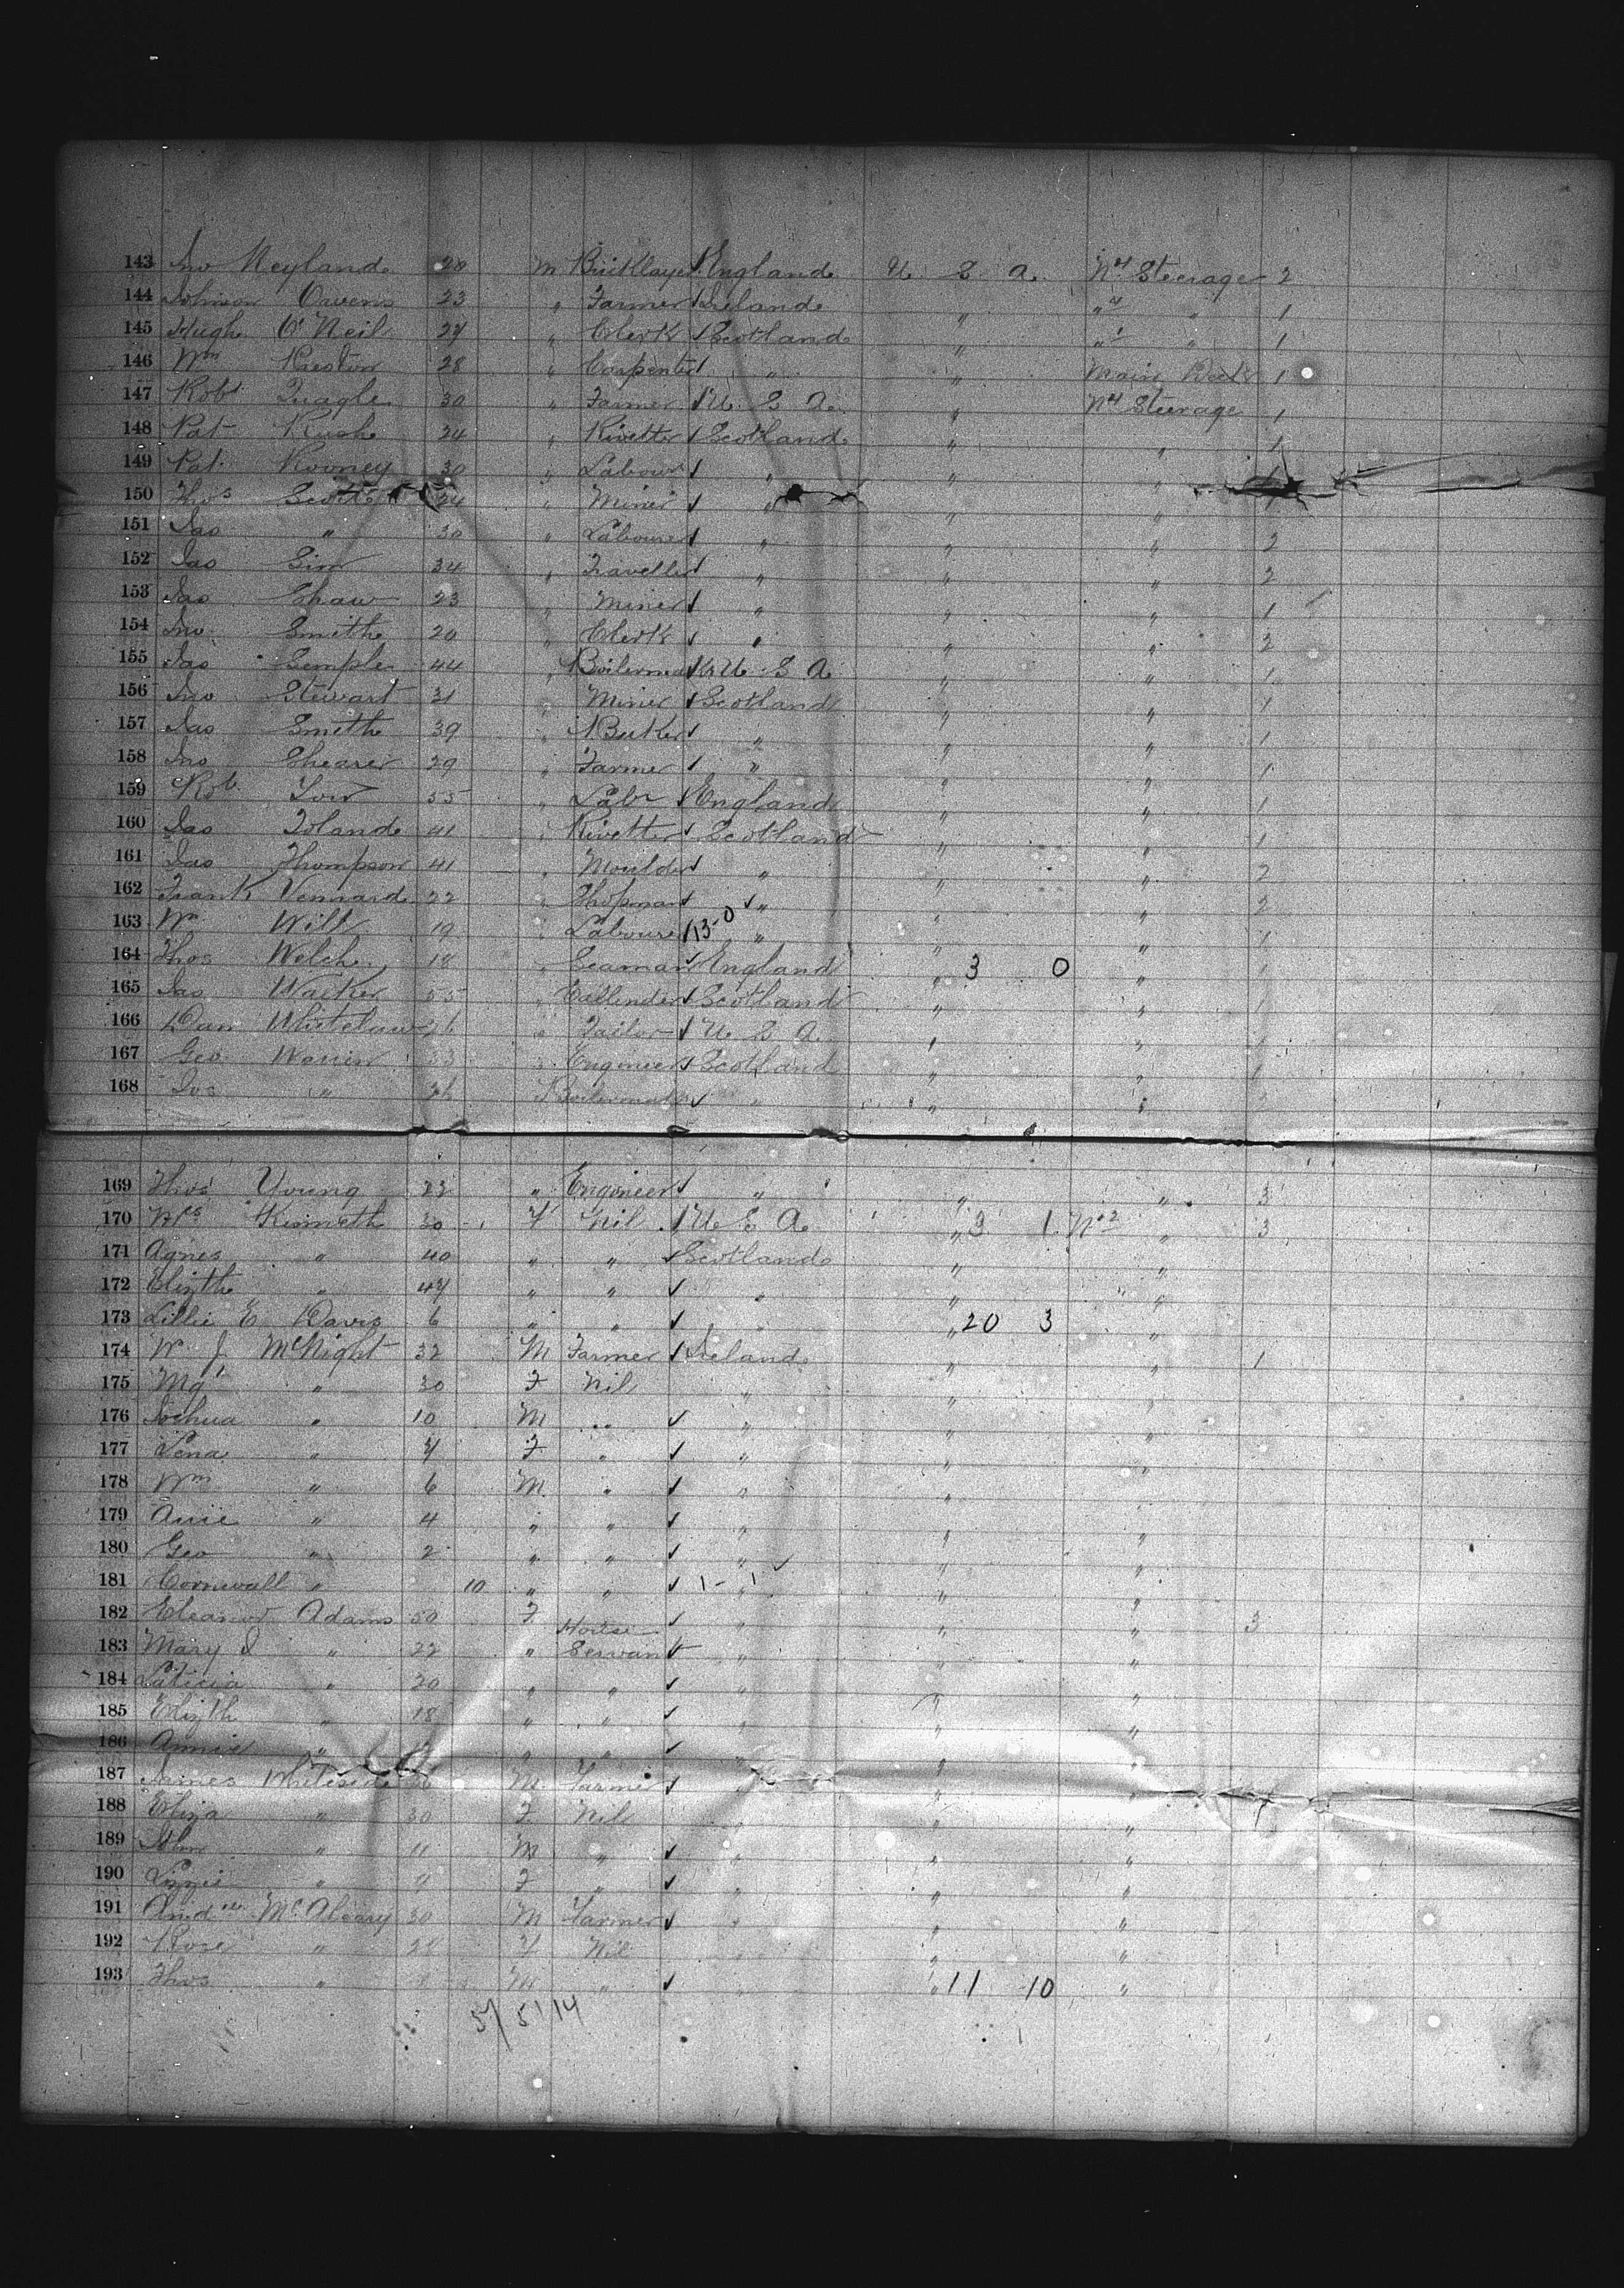 143 Jno Neyland 28 M Bricklayer England U S A No 4 Steerage 2
144 Johnson Owens 23 " Farmer Ireland " " " 1
145 Hugh O'Neil 27 " Clerk Scotland " " " 1
146 Wm Preston 28 " Carpenter " " Main Deck 1
147 Robt Quagle 30 " Farmer U. S A. " No 4 Steerage 1
148 Pat Rush 24 " Rivetter Scotland " " 1
149 Pat. Rooney 30 " Labour " " "
150 Thos Scott 24 " Miner " " "
151 Jas " 30 " Labourer " " " 2
152 Jas Sim 34 " Traveller " " " 2
153 Jas Shaw 23 " Miner " " " 1
154 Jno Smith 20 " Clerk " " " 2
155 Jas Semple 44 " Boilermaker U. S A " " 1
156 Jno Stewart 31 " Miner Scotland " " 1
157 Jas Smith 39 " Baker " " " 1
158 Jno Shearer 29 " Farmer " " " 1
159 Rob 55 " Labr England " " 1
160 Jas Toland 41 " Rivetter Scotland " " 1
161 Jas Thompson 41 " Moulder " " " 2
162 Frank Vennard 22 " Shopman " " " 2
163 Wm Will 19 " Labourer 13-0 " " " 1
164 Thos Welch 18 " Seaman England " 3 0 " 1
165 Jas Walker 55 " Callender Scotland " " 1
166 Dan Whitelaw 26 " Tailor U S A " " 1
167 Geo 33 " Engineer Scotland " " 1
168 Jos " 26 Boilermaker " " "
169 Thos Young 22 " Engineer " " " 3
170 Mrs 30 F Nil U S A " 3 1 No 2 " 3
171 Agnes " 40 " " Scotland " "
172 Elizth " 47 " " " " "
173 Lillie E Davis 6 " " " " 20 3 "
174 W J McNight 32 M Farmer Ireland " " 1
175 Mgt " 30 F Nil " " "
176 Joshua " 10 M " " " "
177 Lena " F " " " "
178 Wm " 6 M " " " "
179 Anie " 4 " " " " "
180 Geo " 2 " " " " "
181 Cornwall " 10 " " 1-1 " "
182 Eleanor Adams 50 F " " " 3
183 Mary J " 22 " House Servant " " "
184 Laticia " 20 " " " " "
185 Elizth " 18 " " " " "
186 Annie " " " " " "
187 James Whiteside 36 M Farmer " " "
188 Eliza " 30 F Nil " " "
189 " 11 M " " " "
190 Lizzie " 9 F " " " "
191 Andw McAleary 30 M Farmer " " "
192 Rose " 28 F Nil " " "
193 Thos " M " " 11 10 "
57 51 14